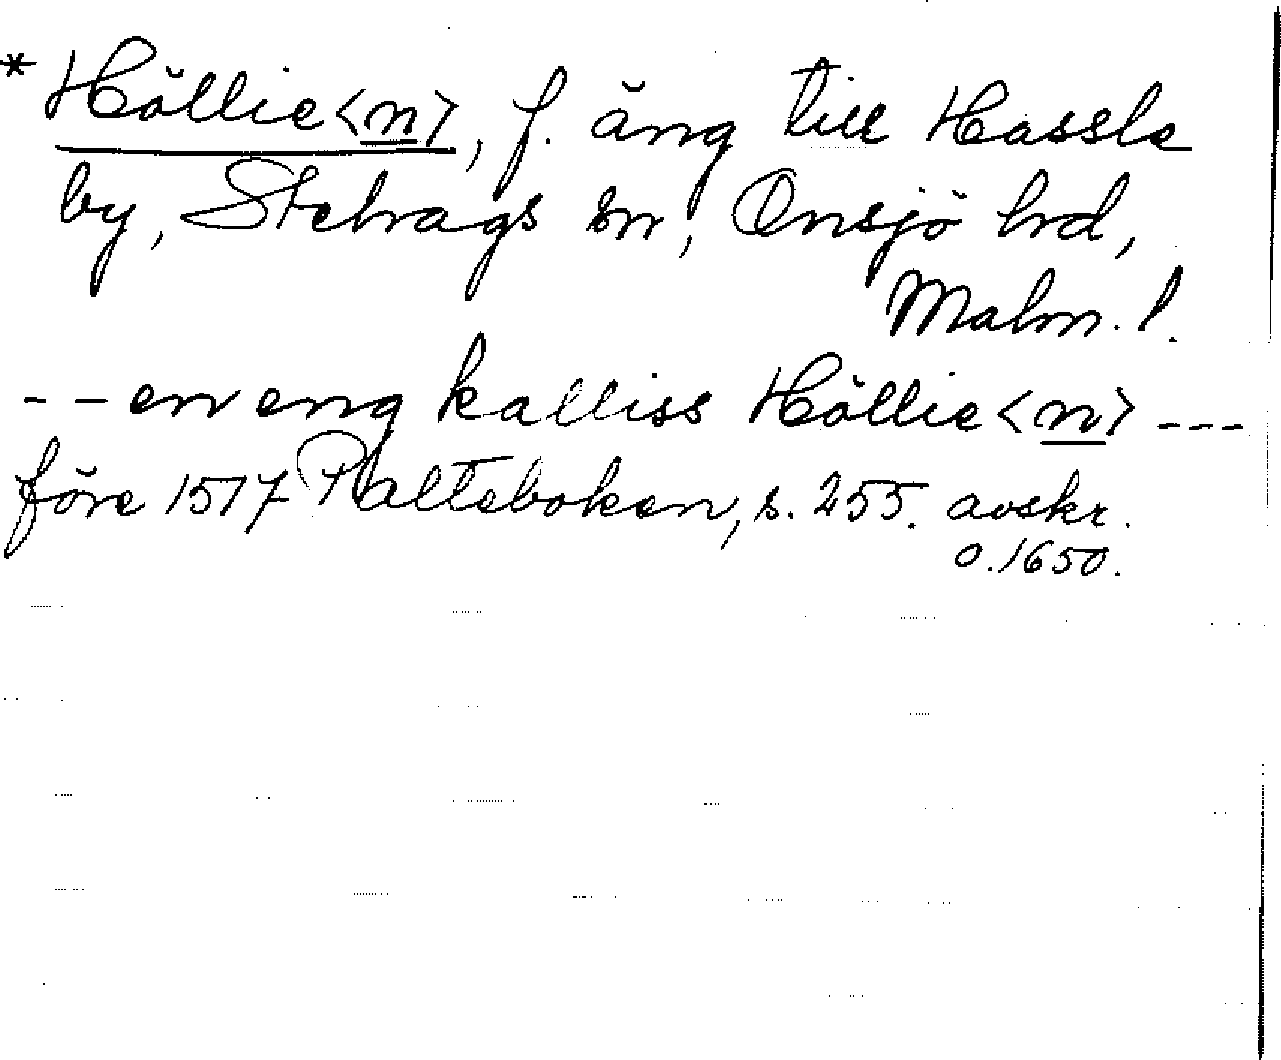 * Höllie<n>, f. äng till Hassle
by, Stehags sn, Onsjö hd,
Malm. l.
-- en eng kalliss Höllie<n> ---
före 1517 Palteboken, s. 255. avskr.
o. 1650.